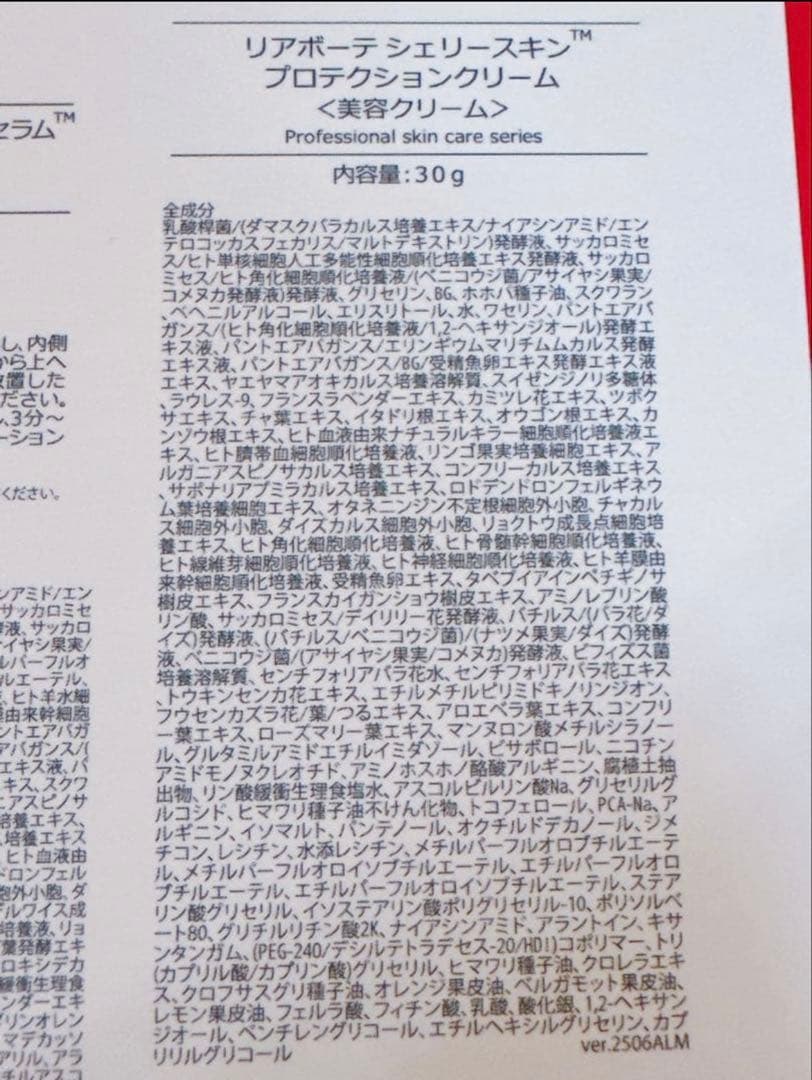 リアボーテ シェリースキン™
プロテクションクリーム
<美容クリーム>
Professional skin care series
内容量:30g
全成分
乳酸桿菌/(ダマスクバラカルス培養エキス/ナイアシンアミド/エン
テロコッカスフェカリス/マルトデキストリン)発酵液、サッカロミセ
ス/ヒト単核細胞人工多能性細胞順化培養エキス発酵液、サッカロ
ミセス/ヒト角化細胞順化培養液/(ベニコウジ菌/アサイヤシ果実/
コメヌカ発酵液)発酵液、グリセリン、BG、ホホバ種子油、スクワラン
、ベヘニルアルコール、エリスリトール、水、ワセリン、パントエアバ
ガンス/(ヒト角化細胞順化培養液/1,2-ヘキサンジオール)発酵エ
キス液、パントエアバガンス/エリンギウムマリチムムカルス発酵
エキス液、パントエアバガンス/BG/受精魚卵エキス発酵エキス液
エキス、ヤエヤマアオキカルス培養溶解質、スイゼンジノリ多糖体
、ラウレス-9、フランスラベンダーエキス、カミツレ花エキス、ツボク
サエキス、チャ葉エキス、イタドリ根エキス、オウゴン根エキス、カ
ンゾウ根エキス、ヒト血液由来ナチュラルキラー細胞順化培養液エ
キス、ヒト臍帯血細胞順化培養液、リンゴ果実培養細胞エキス、ア
ルガニアスピノサカルス培養エキス、コンフリーカルス培養エキス
、サポナリアプミラカルス培養エキス、ロドデンドロンフェルギネウ
ム葉培養細胞エキス、オタネニンジン不定根細胞外小胞、チャカル
ス細胞外小胞、ダイズカルス細胞外小胞、リョクトウ成長点細胞培
養エキス、ヒト角化細胞順化培養液、ヒト骨髄幹細胞順化培養液、
ヒト線維芽細胞順化培養液、ヒト神経細胞順化培養液、ヒト羊膜由
来幹細胞順化培養液、受精魚卵エキス、タベブイアインペチギノサ
樹皮エキス、フランスカイガンショウ樹皮エキス、アミノレブリン酸
リン酸、サッカロミセス/デイリリー花発酵液、バチルス/(バラ花/ダ
イズ)発酵液、(バチルス/ベニコウジ菌)/(ナツメ果実/ダイズ)発酵
液、ベニコウジ菌/(アサイヤシ果実/コメヌカ)発酵液、ビフィズス菌
培養溶解質、センチフォリアバラ花水、センチフォリアバラ花エキス
、トウキンセンカ花エキス、エチルメチルピリミドキノリンジオン、
フウセンカズラ花/葉/つるエキス、アロエベラ葉エキス、コンフリ
ー葉エキス、ローズマリー葉エキス、マンヌロン酸メチルシラノー
ル、グルタミルアミドエチルイミダゾール、ビサボロール、ニコチン
アミドモノヌクレオチド、アミノホスホノ酪酸アルギニン、腐植土抽
出物、リン酸緩衝生理食塩水、アスコルビルリン酸Na、グリセリルグ
ルコシド、ヒマワリ種子油不けん化物、トコフェロール、PCA-Na、ア
ルギニン、イソマルト、パンテノール、オクチルドデカノール、ジメ
チコン、レシチン、水添レシチン、メチルパーフルオロブチルエーテ
ル、メチルパーフルオロイソブチルエーテル、エチルパーフルオロ
ブチルエーテル、エチルパーフルオロイソブチルエーテル、ステア
リン酸グリセリル、イソステアリン酸ポリグリセリル-10、ポリソルベ
ート80、グリチルリチン酸2K、ナイアシンアミド、アラントイン、キサ
ンタンガム、(PEG-240/デシルテトラデセス-20/HDI)コポリマー、トリ
(カプリル酸/カプリン酸)グリセリル、ヒマワリ種子油、クロレラエキ
ス、クロフサスグリ種子油、オレンジ果皮油、ベルガモット果皮油、
レモン果皮油、フェルラ酸、フィチン酸、乳酸、酸化銀、1,2-ヘキサン
ジオール、ペンチレングリコール、エチルヘキシルグリセリン、カプ
リリルグリコール
ver.2506ALM
セラム™
し、内側
から上へ
放置した
ださい。
、3分～
ーション
ください。
ンアミド/エン
サッカロミセ
酵液、サッカロ
サイヤシ果実/
ルパーフルオ
ルエーテル、
、ヒト羊水細
膜由来幹細胞
ントエアバガ
アバガンス/(
エキス液、パ
キス、スクワ
ニアスピノサ
培養エキス、
培養エキス
、ヒト血液由
ドロンフェル
胞外小胞、ダ
ドルワイス成
培養液、リョ
葉発酵エキ
ロキシデカ
緩衝生理食
ンダーエキ
グリンオレン
マデカッソ
アリル、アラ
チルアスコ